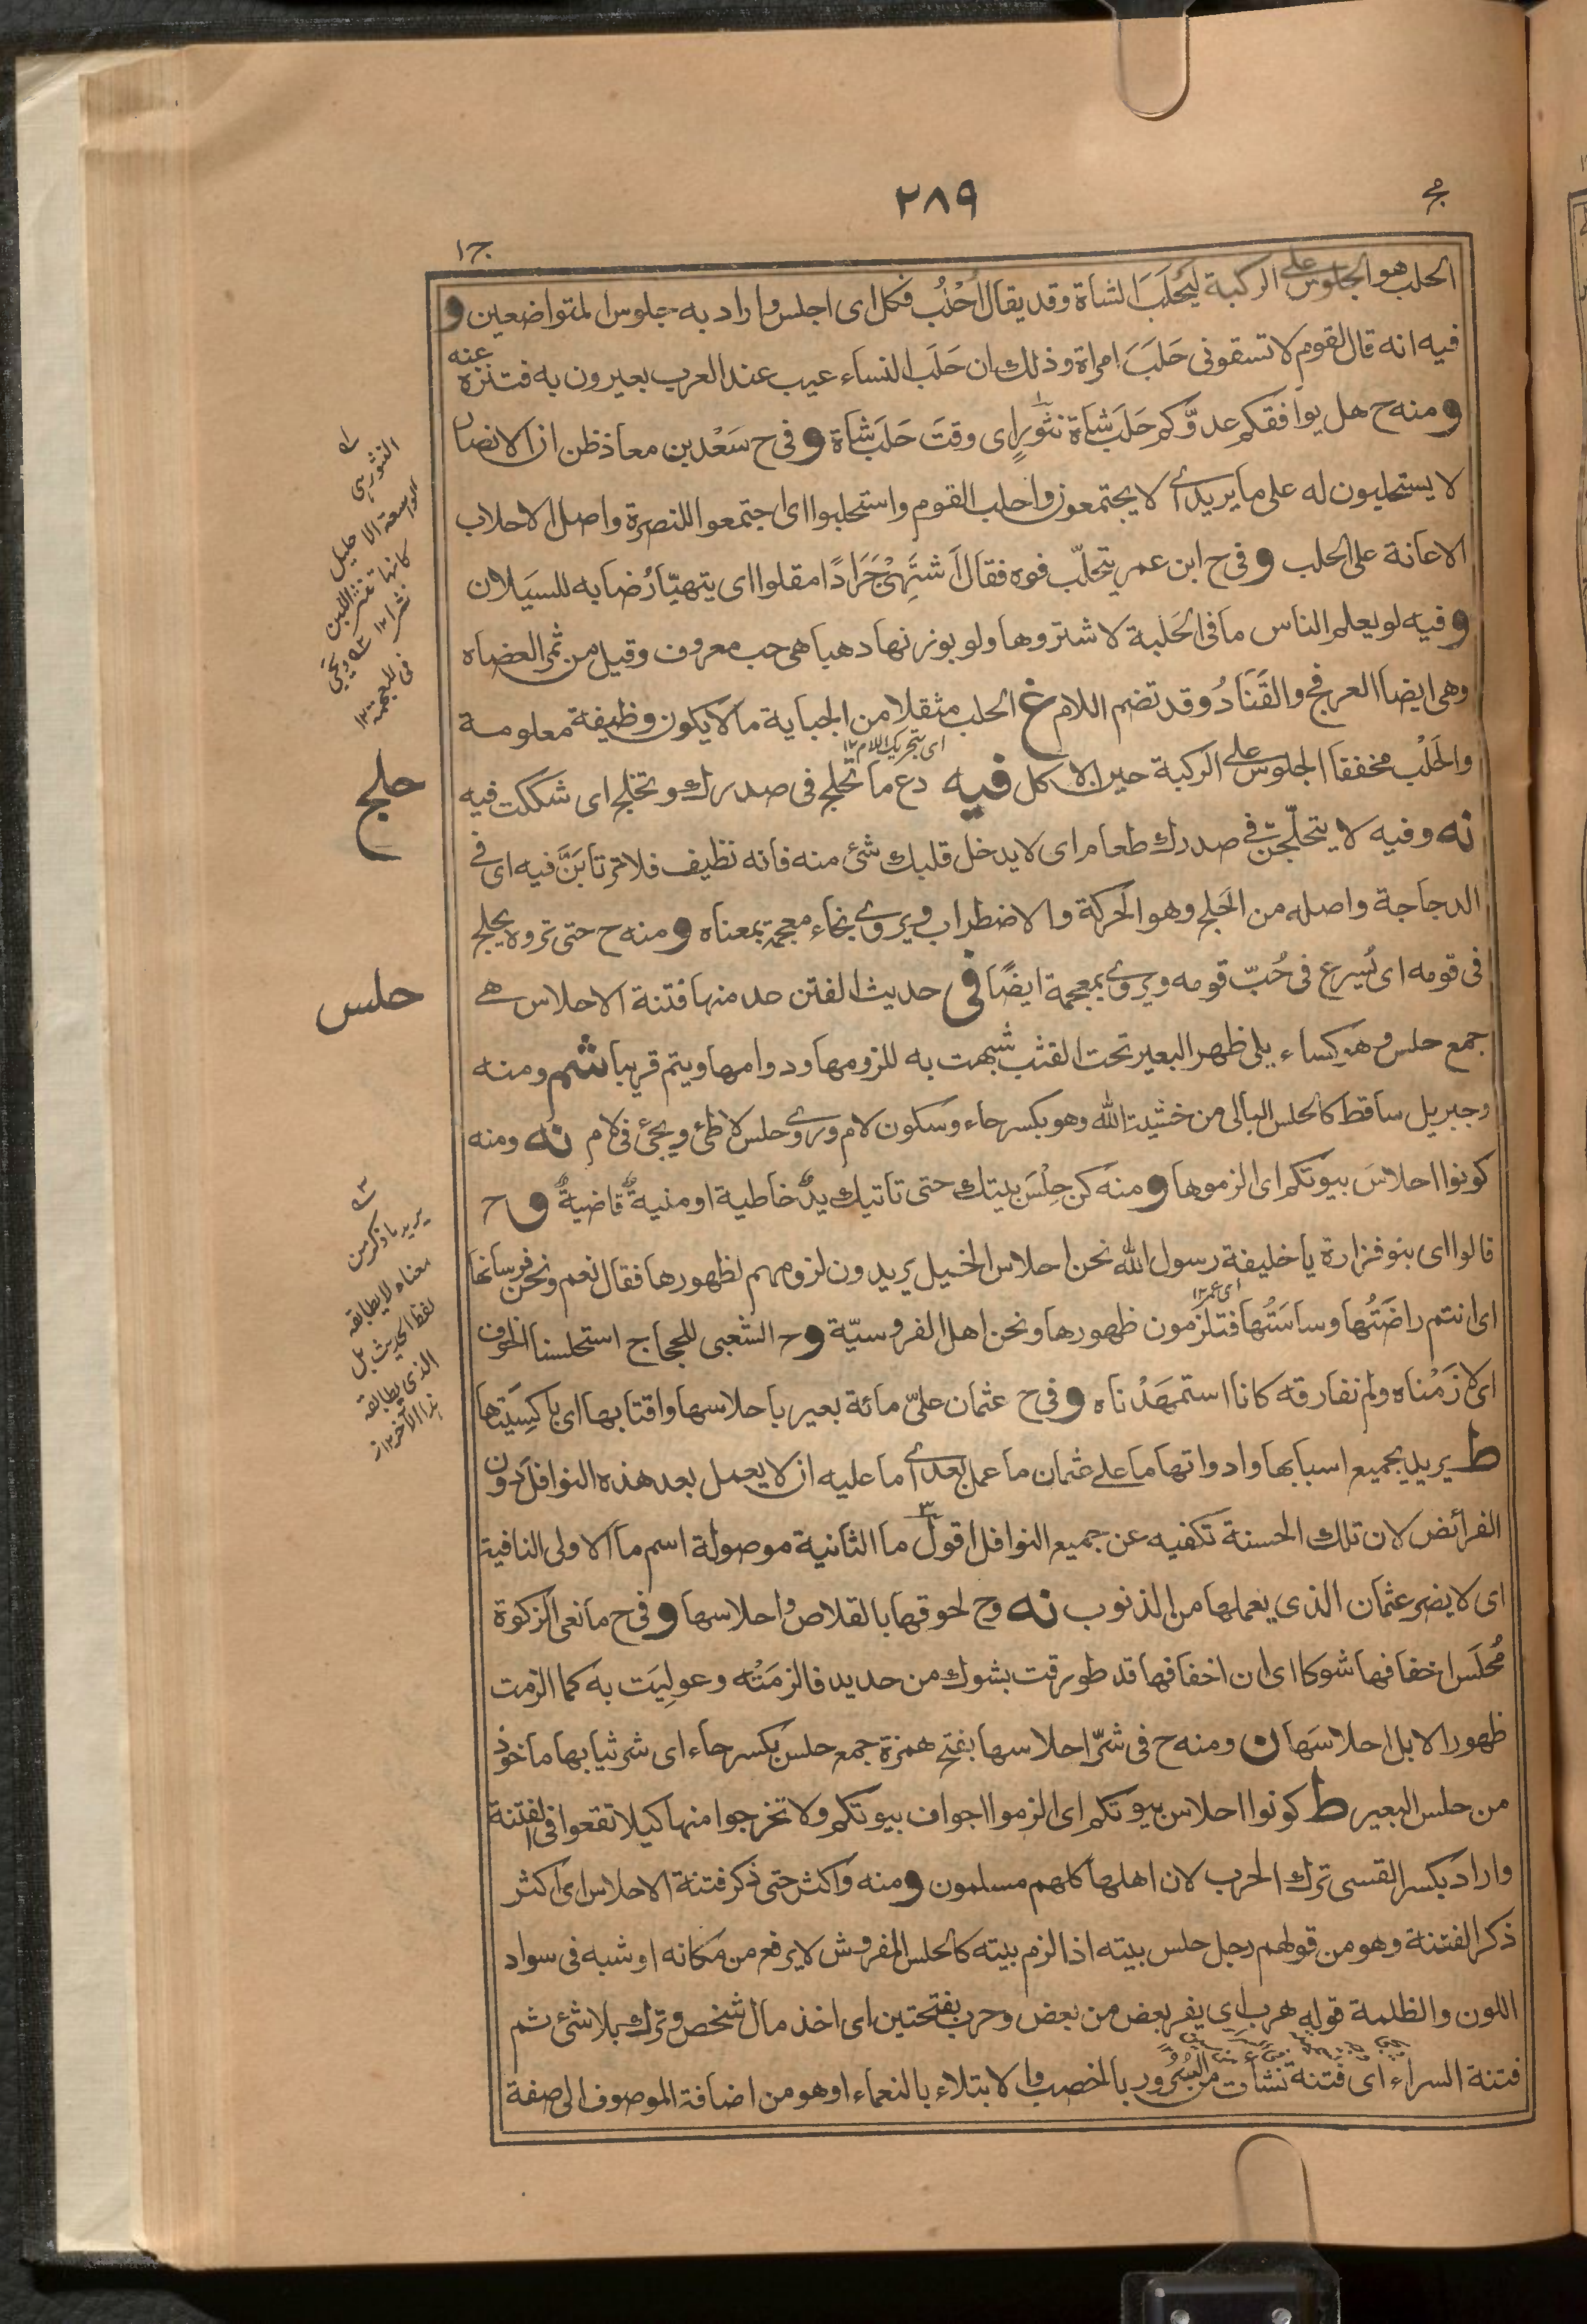 مج
٢٨٩
ج١
الحلب هو الجلوس على الركبة ليَحلَبَ الشاة وقد يقال احْلُب فكل اى اجلس واراد به جلوس المتواضعين و
فيه انه قال لقوم لا تسقونى حَلَبَ امراة وذلك ان حَلَب النساء عيب عند العرب يعيرون به فتنزه عنه
ومنه ح هل يوافقكم عدوّكم حَلَب شاة نثورٍ اى وقتَ حَلَب شاة وفى ح سَعْد بن معاذ ظن ان الانصار
لا يستحلبون له على ما يريد اى لا يجتمعون واحلب القوم واستحلبوا اى اجتمعوا للنصرة واصل الاحلاب
الاعانة على الحلب وفى ح ابن عمر يتحلّب فوه فقال اَشتَهِىْ جَرَادًا مقلوا اى يتهيّأ رُضابه للسيَلان
وفيه لو يعلم الناس ما فى الحَلبة لاشتروها ولو بوزنها ذهبا هى حب معروف وقيل من ثمر العضاه
وهى ايضا العرفج والقَتَادُ وقد تضم اللام غ الحلب مثقلا من الجباية ما لا يكون وظيفة معلومة
اى بتحريك اللام ١٢
والحَلْب مخففا الجلوس على الركبة حين الاكل فيه دع ما تحلج فى صدرك وتخلج اى شككت فيه
حلج
نه وفيه لا يتحلّجنّ فى صدرك طعام اى لا يدخل قلبك شئ منه فانه نظيف فلا ترتابَنَّ فيه اى فى
الدجاجة واصله من الحَلج وهو الحركة والاضطراب ويروى بخاء معجمة بمعناه ومنه ح حتى تروه يحلج
فى قومه اى يُسرع فى حُبّ قومه ويروى بمعجمة ايضًا فى حديث الفتن عد منها فتنة الاحلاس هى
حلس
جمع حلس وهو كِساء يلى ظهر البعير تحت القتب شبهت به للزومها ودوامها ويتم قريبا شم ومنه
وجبريل ساقط كالحلس البالى من خشية الله وهو بكسر حاء وسكون لام وروى وحلس لاطئ ويجئ فى لام نه ومنه
كونوا احلاسَ بيوتكم اى الزموها ومنه كن حِلْسَ بيتك حتى تاتيك يدٌ خاطية او منيةٌ قاضيةٌ وح
قالوا اى بنو فزارة يا خليفة رسول الله نحن احلاس الخيل يريدون لزومهم لظهورها فقال نعم ونحن فرسانها
اى عمر ١٢
اى انتم راضَتُها وساسَتُها فتلزمون ظهورها ونحن اهل الفروسيّة وح الشعبى للحجاج استحلسنا الخوف
اى لازَمْناه ولم نفارقه كانا استمهَدْناه وفى ح عثمان علىّ مائة بعير باحلاسها واقتابها اى باكسِيَتها
ط يريد بجميع اسبابها وادواتها ما على عثمان ما عمل بعد اى ما عليه ان لا يعمل بعد هذه النوافل دون
الفرائض لان تلك الحسنة تكفيه عن جميع النوافل اقول٣ ما الثانية موصولة اسم ما الاولى النافية
اى لا يضر عثمان الذى يعملها من الذنوب نه وح لحوقها بالقلاص واحلاسها وفى ح مانعى الزكوة
مُحلَس اخفافها شوكا اى ان اخفافها قد طورقت بشوك من حديد فالزمَتْه وعولِيَت به كما الزمت
ظهور الابل احلاسَها ن ومنه ح فى شرّ احلاسها بفتح همزة جمع حلس بكسر حاء اى شر ثيابها ماخوذ
من حلس البعير ط كونوا احلاس بيوتكم اى الزموا اجواف بيوتكم ولا تخرجوا منها كيلا تقعوا فى الفتنة
واراد بكسر القسى ترك الحرب لان اهلها كلهم مسلمون ومنه واكثر حتى ذكر فتنة الاحلاس اى اكثر
ذكر الفتنة وهو من قولهم رجل حلس بيته اذا لزم بيته كالحلس المفروش لا يرفع من مكانه او شبه فى سواد
اللون والظلمة قوله هرب اى يفر بعض من بعض وحرب بفتحتين اى اخذ مال شخص وترك بلا شئ ثم
فتنة السراء اى فتنة نشأت من السُرُور بالخصب والابتلاء بالنعماء او هو من اضافة الموصوف الى صفة
النثور هى
الواسعة الاحليل
كانها تنثر اللبن
نثرا ١٢
ويجئ
فى المعجمة ١٢
٣
يريد ما ذكر من
معناه لا يطابقه
لفظ الحديث بل
الذى يطابقه
هذا الآخر ١٢